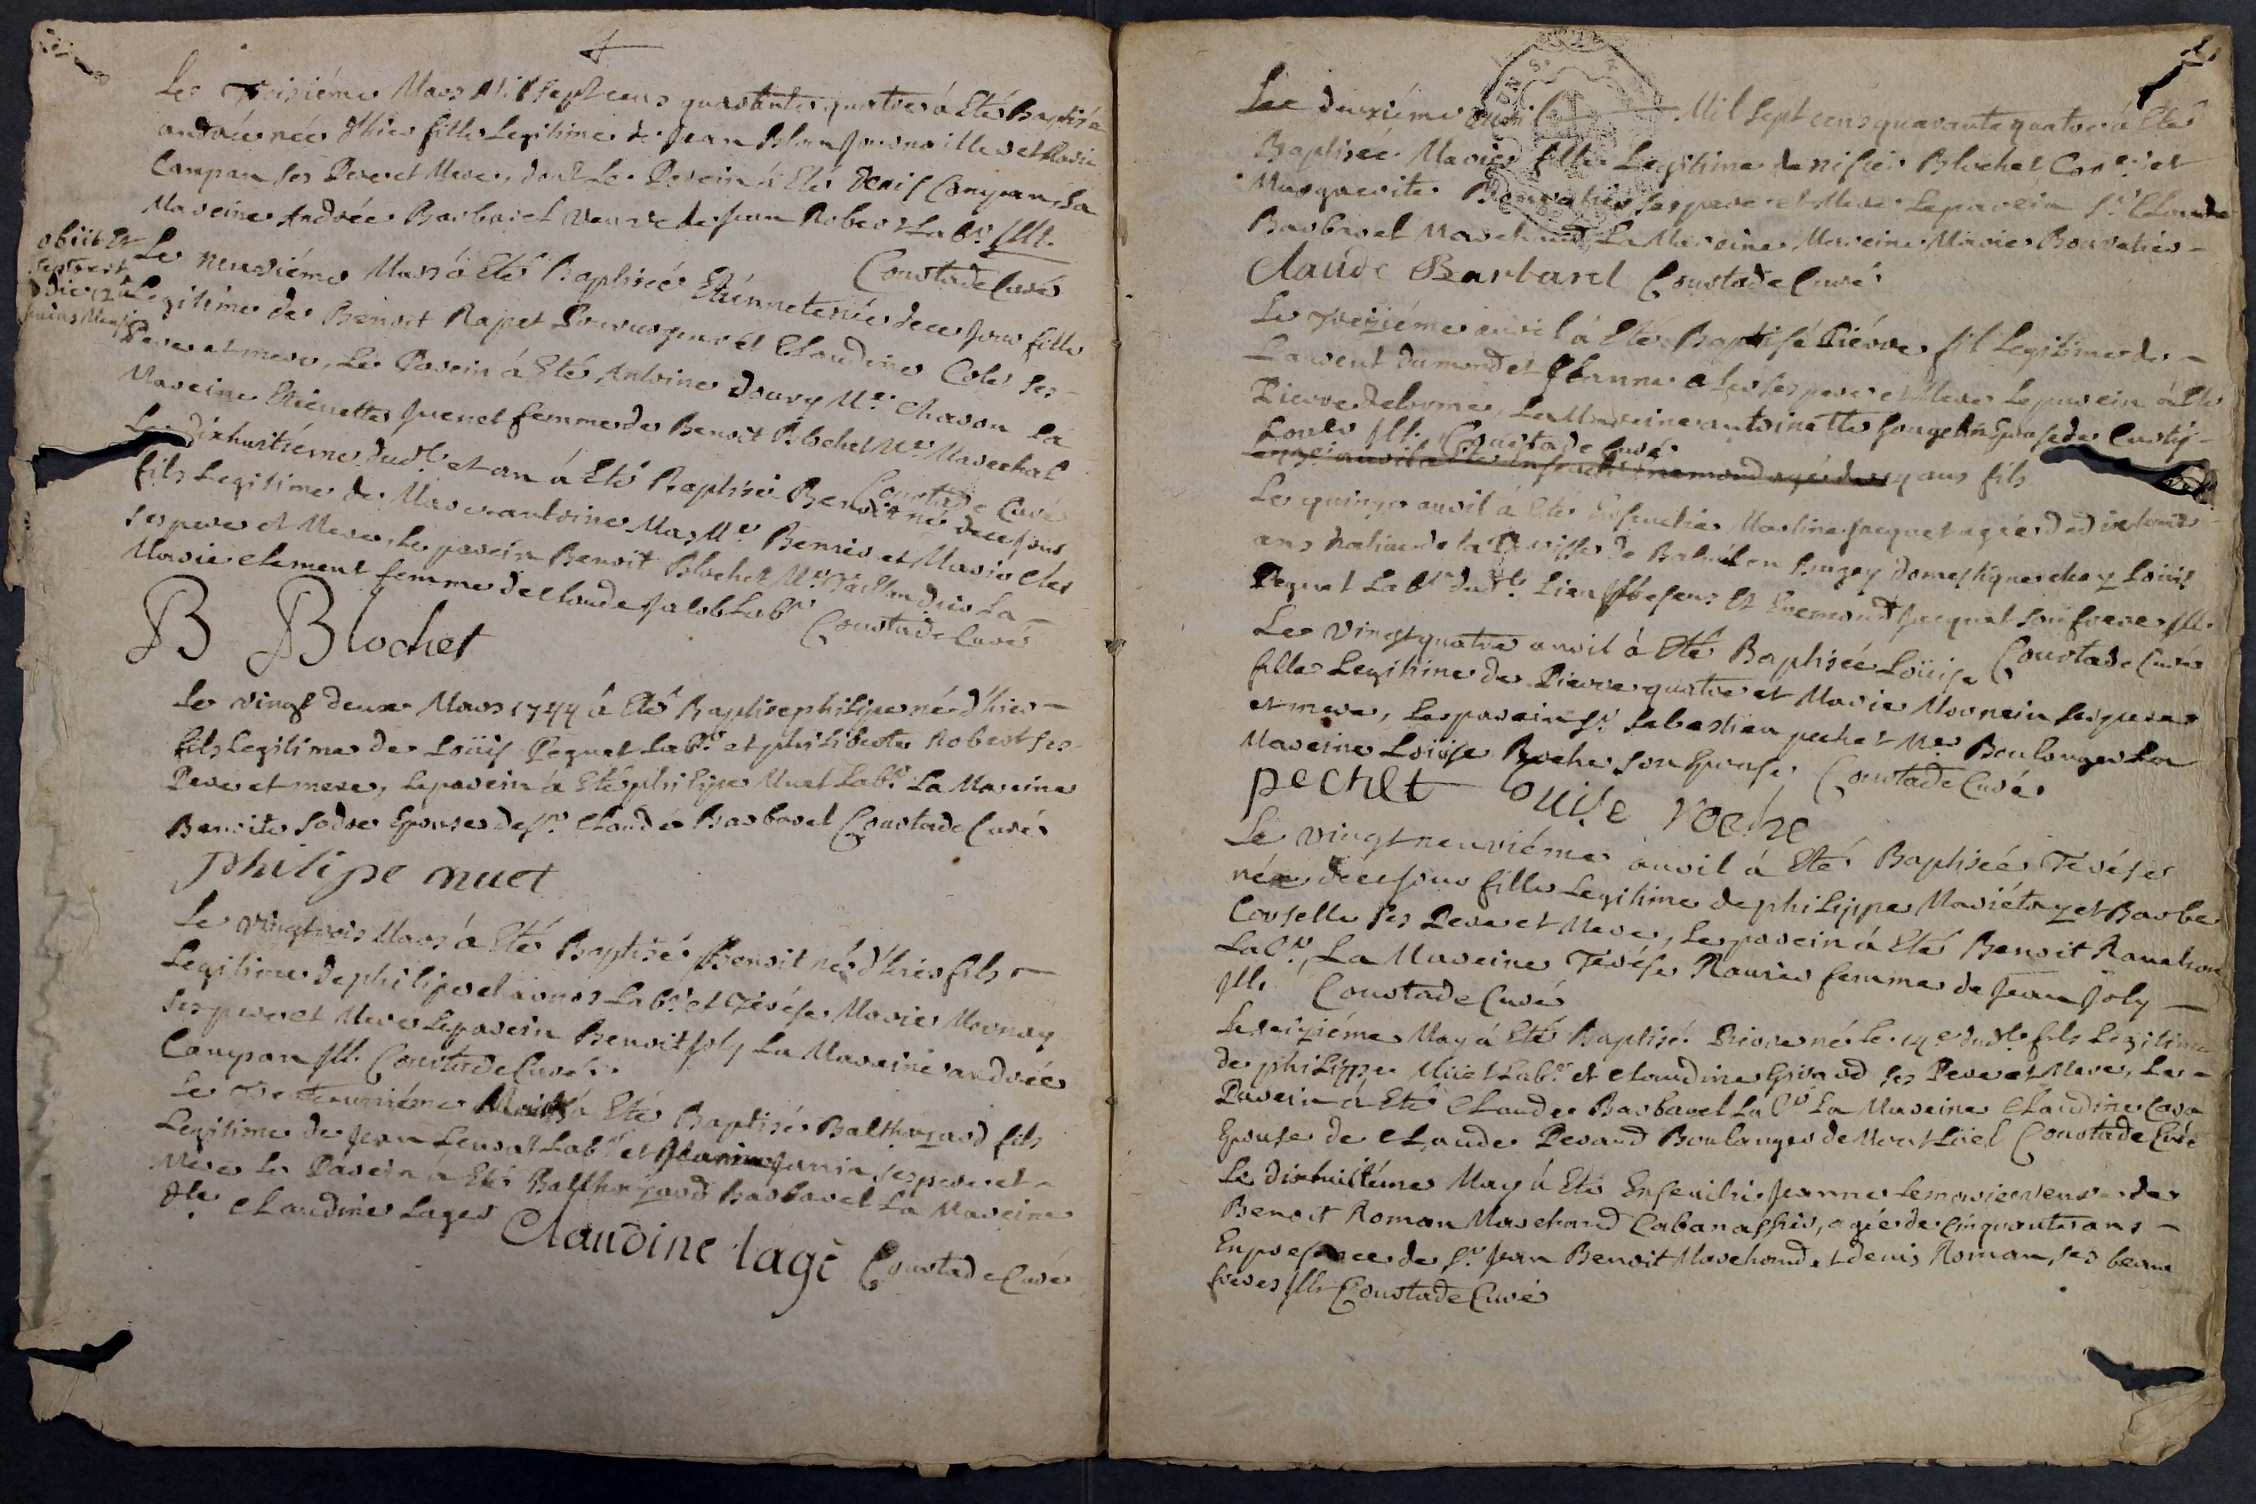 Le Troisiéme Mars Mil sept cens quarante quatre à Eté Baptisée
andrée née d'hier fille Legitime de Jean Blan Journaillier et Marie
Campan ses Pere et Mere, dont Le Parein à Eté Denis Campan, La
Mareine Andrée Barbaret veuve de Jean Robert Labr. Ill.
Courtade Curé
obiit et
sepult est
die 12a
Le neuviéme Mars à Eté Baptisée Etiennete née de ce jour fille
Legitime de Benoit Rapet et Claudine Cote ses
Pere et mere, Le Parein à Eté Antoine Douvy Me Charon La
Mareine Etiennette Juenet femme de Benoit Blochet Me Marechal
Courtade Curé
Le dixhuitiéme dudt et an à Eté Baptisé Benoit né de ce jour
fils Legitime de Marc antoine Mas Me et Marie Cle
ses pere et Mere, Le parein Benoit Blochet Me Taillandier La
Marie clement femme de Claude Jalob Labr
Courtade Curé
B Blochet
Le vingt deux Mars 1744 à Eté Baptise philipe né d'hier
fils Legitime de Loüis Peguet Labr. et philiberte Robert ses
Pere et mere, Le parein à Eté philipe Nuet Labr. La Mareine
Benoite Sodre Epouse de sr. Claude Barbaret Courtade Curé
philipe nuet
Le vingttrois Mars à Eté Baptisé Benoit né d'hier fils
Legitime de philipe Labr. et Terése Marie Mornay
ses pere et Mere Le parein Benoit Joly La Mareine andrée
Campan Ill. Courtade Curé
Le Trenteuniéme Mars à Eté Baptisé Balthazard fils
Legitime de Jean Leurat Labr et Jeanne Janin ses pere et
Mere Le Parein à Eté Balthazard Barbaret La Mareine
dlle Claudine Lage Claudine lage Courtade Curé
Le deuxiéme avril Mil sept cens quarante quatre à Eté
Baptisée Marie fille Legitime de nisier Blochet et
Marguerite Bouvatier ses pere et Mere Le parein sr. Claude
Barbaret Marchand La Mareine Marie Bouvatier
Claude Barbaret Courtade Curé
Le Treiziéme avril à Eté Baptisé Piérre fil Legitime de
Laurent dumond et Jeanne ses pere et Mere Le parein à Eté
Pierre delorme, La Mareine antoinette Gougetin Epouse de
Ill. Courtade Curé
ans fils
Le quinze avril à Eté Ensevelie Martine Jaquet agée de dixhuit
ans native de la Paroisse de en Bugey domestique chez Loüis
Peguet Labr dudt. Lieu et Enemond Jaquet son frere Ill.
Courtade Curé
Le Vingtquatre avril à Eté Baptisée Loüise
fille Legitime de Pierre quatre et Marie Mornein ses pere
et mere, Le parein sr. Sebastien pechet Me Boulanger La
Mareine Loüise Roche son Epouse, Courtade Curé
pechet Ouise roche
Le vingtneuviéme avril à Eté Baptisée Terése
née de ce jour fille Legitime de philippe Mariétaz et Barbe
Corselle ses Pere et Mere, Le parein à Eté Benoit
Labr., La Mareine Terése Rourier femme de Jean Joly
Ill. Courtade Curé
Le seiziéme May à Eté Baptisé Pierre né Le 14e dudt. fils Legitime
de philippe Nuet Labr. et Claudine Girard ses Pere et Mere, Le
Parein à Eté Claude Barbaret Labr La Mareine Claudine
Epouse de Claude Perard Boulanger de Montlüel Courtade Curé
Le dixhuitiéme May à Eté Ensevelie Jeanne veuve de
Benoit Roman Marchand Cabanassier, agée de cinquante ans
En presence de sr. Jean Benoit Marchand et denis Roman, ses beau
freres Ill. Courtade Curé